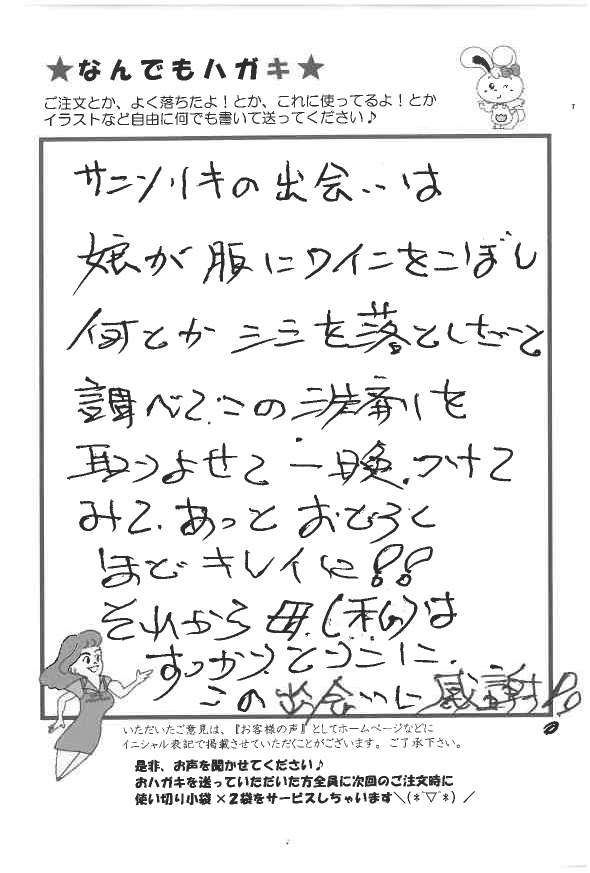 ★なんでもハガキ★
ご注文とか、よく落ちたよ！とか、これに使ってるよ！とか
イラストなど自由に何でも書いて送ってください♪
サンソリキの出会いは
娘が服にワインをこぼし
何とかシミを落としたいと
調べて、この洗剤を
取りよせて一晩、つけて
みて、あっとおどろく
ほどキレイに!!
それから母、(私)は
すっかりとりこに、
この出会いに感謝!!
いただいたご意見は、『お客様の声』としてホームページなどに
イニシャル表記で掲載させていただくことがございます。ご了承下さい。
是非、お声を聞かせてください♪
おハガキを送っていただいた方全員に次回のご注文時に
使い切り小袋×2袋をサービスしちゃいます＼(*ﾟ▽ﾟ*)／